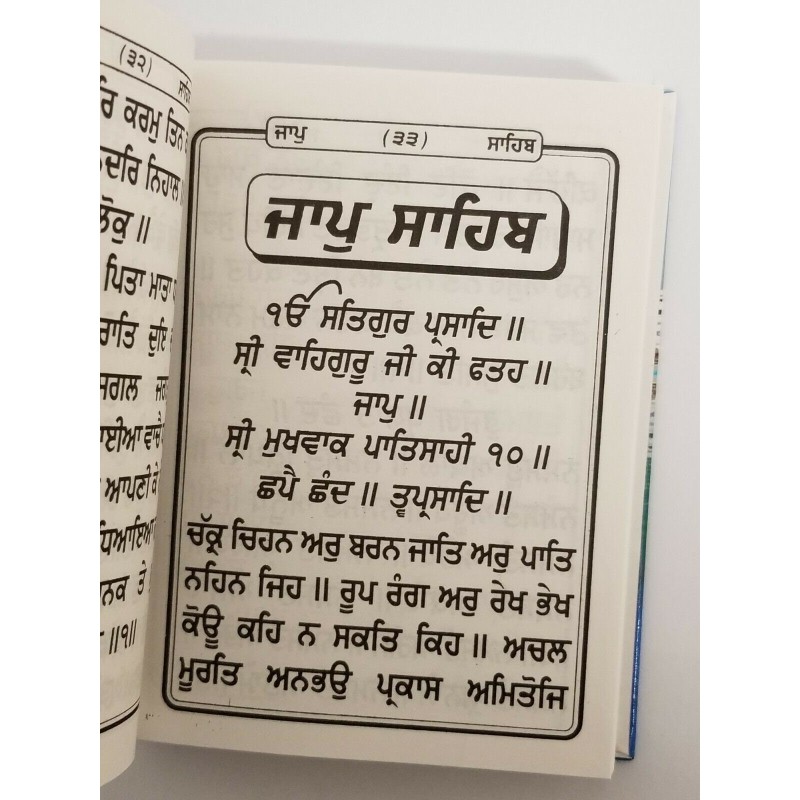 (੩੨) ਸਾਹਿ
ਰਿ ਕਰਮੁ ਤਿਨ
ਨਦਰਿ ਨਿਹਾਲ
ਲੋਕੁ ॥
ਪਿਤਾ ਮਾਤਾ
ਰਾਤਿ ਦੁਇ
ਸਗਲ ਜਗ
ਆਈਆ ਵਾਚੈ
ਆਪਣੀ ਕੇ
ਧਿਆਇਆ
ਨਾਨਕ ਤੇ
॥੧॥
ਜਾਪੁ (੩੩) ਸਾਹਿਬ
ਜਾਪੁ ਸਾਹਿਬ
ੴ ਸਤਿਗੁਰ ਪ੍ਰਸਾਦਿ ॥
ਸ੍ਰੀ ਵਾਹਿਗੁਰੂ ਜੀ ਕੀ ਫਤਹ ॥
ਜਾਪੁ ॥
ਸ੍ਰੀ ਮੁਖਵਾਕ ਪਾਤਿਸਾਹੀ ੧੦ ॥
ਛਪੈ ਛੰਦ ॥ ਤ੍ਵਪ੍ਰਸਾਦਿ ॥
ਚੱਕ੍ਰ ਚਿਹਨ ਅਰੁ ਬਰਨ ਜਾਤਿ ਅਰੁ ਪਾਤਿ
ਨਹਿਨ ਜਿਹ ॥ ਰੂਪ ਰੰਗ ਅਰੁ ਰੇਖ ਭੇਖ
ਕੋਊ ਕਹਿ ਨ ਸਕਤਿ ਕਿਹ ॥ ਅਚਲ
ਮੂਰਤਿ ਅਨਭਉ ਪ੍ਰਕਾਸ ਅਮਿਤੋਜਿ